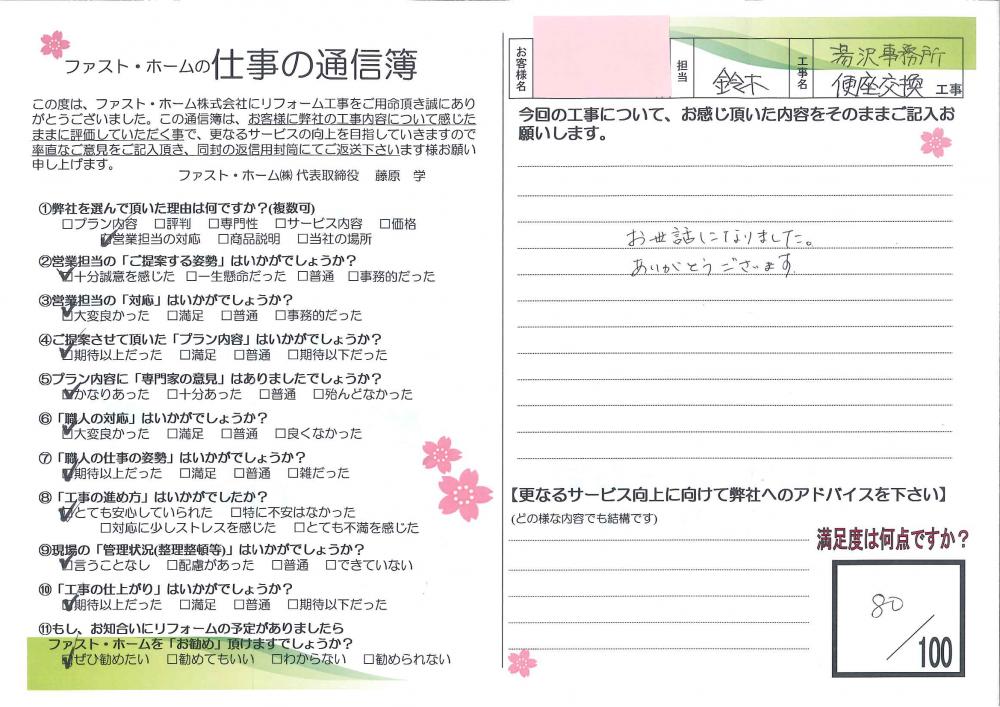 ファスト・ホームの仕事の通信簿
この度は、ファスト・ホーム株式会社にリフォーム工事をご用命頂き誠にあり
がとうございました。この通信簿は、お客様に弊社の工事内容について感じた
ままに評価していただく事で、更なるサービスの向上を目指していきますので
率直なご意見をご記入頂き、同封の返信用封筒にてご返送下さいます様お願い
申し上げます。
ファスト・ホーム㈱ 代表取締役 藤原 学
①弊社を選んで頂いた理由は何ですか？(複数可)
□プラン内容 □評判 □専門性 □サービス内容 □価格
☑営業担当の対応 □商品説明 □当社の場所
②営業担当の「ご提案する姿勢」はいかがでしょうか？
☑十分誠意を感じた □一生懸命だった □普通 □事務的だった
③営業担当の「対応」はいかがでしょうか？
☑大変良かった □満足 □普通 □事務的だった
④ご提案させて頂いた「プラン内容」はいかがでしょうか？
☑期待以上だった □満足 □普通 □期待以下だった
⑤プラン内容に「専門家の意見」はありましたでしょうか？
☑かなりあった □十分あった □普通 □殆んどなかった
⑥「職人の対応」はいかがでしょうか？
☑大変良かった □満足 □普通 □良くなかった
⑦「職人の仕事の姿勢」はいかがでしょうか？
☑期待以上だった □満足 □普通 □雑だった
⑧「工事の進め方」はいかがでしたか？
☑とても安心していられた □特に不安はなかった
□対応に少しストレスを感じた □とても不満を感じた
⑨現場の「管理状況(整理整頓等)」はいかがでしょうか？
☑言うことなし □配慮があった □普通 □できていない
⑩「工事の仕上がり」はいかがでしょうか？
☑期待以上だった □満足 □普通 □期待以下だった
⑪もし、お知合いにリフォームの予定がありましたら
ファスト・ホームを「お勧め」頂けますでしょうか？
☑ぜひ勧めたい □勧めてもいい □わからない □勧められない
お客様名 担当 鈴木 工事名 湯沢事務所
便座交換 工事
今回の工事について、お感じ頂いた内容をそのままご記入お
願いします。
お世話になりました。
ありがとうございます
【更なるサービス向上に向けて弊社へのアドバイスを下さい】
(どの様な内容でも結構です)
満足度は何点ですか？
80
／100